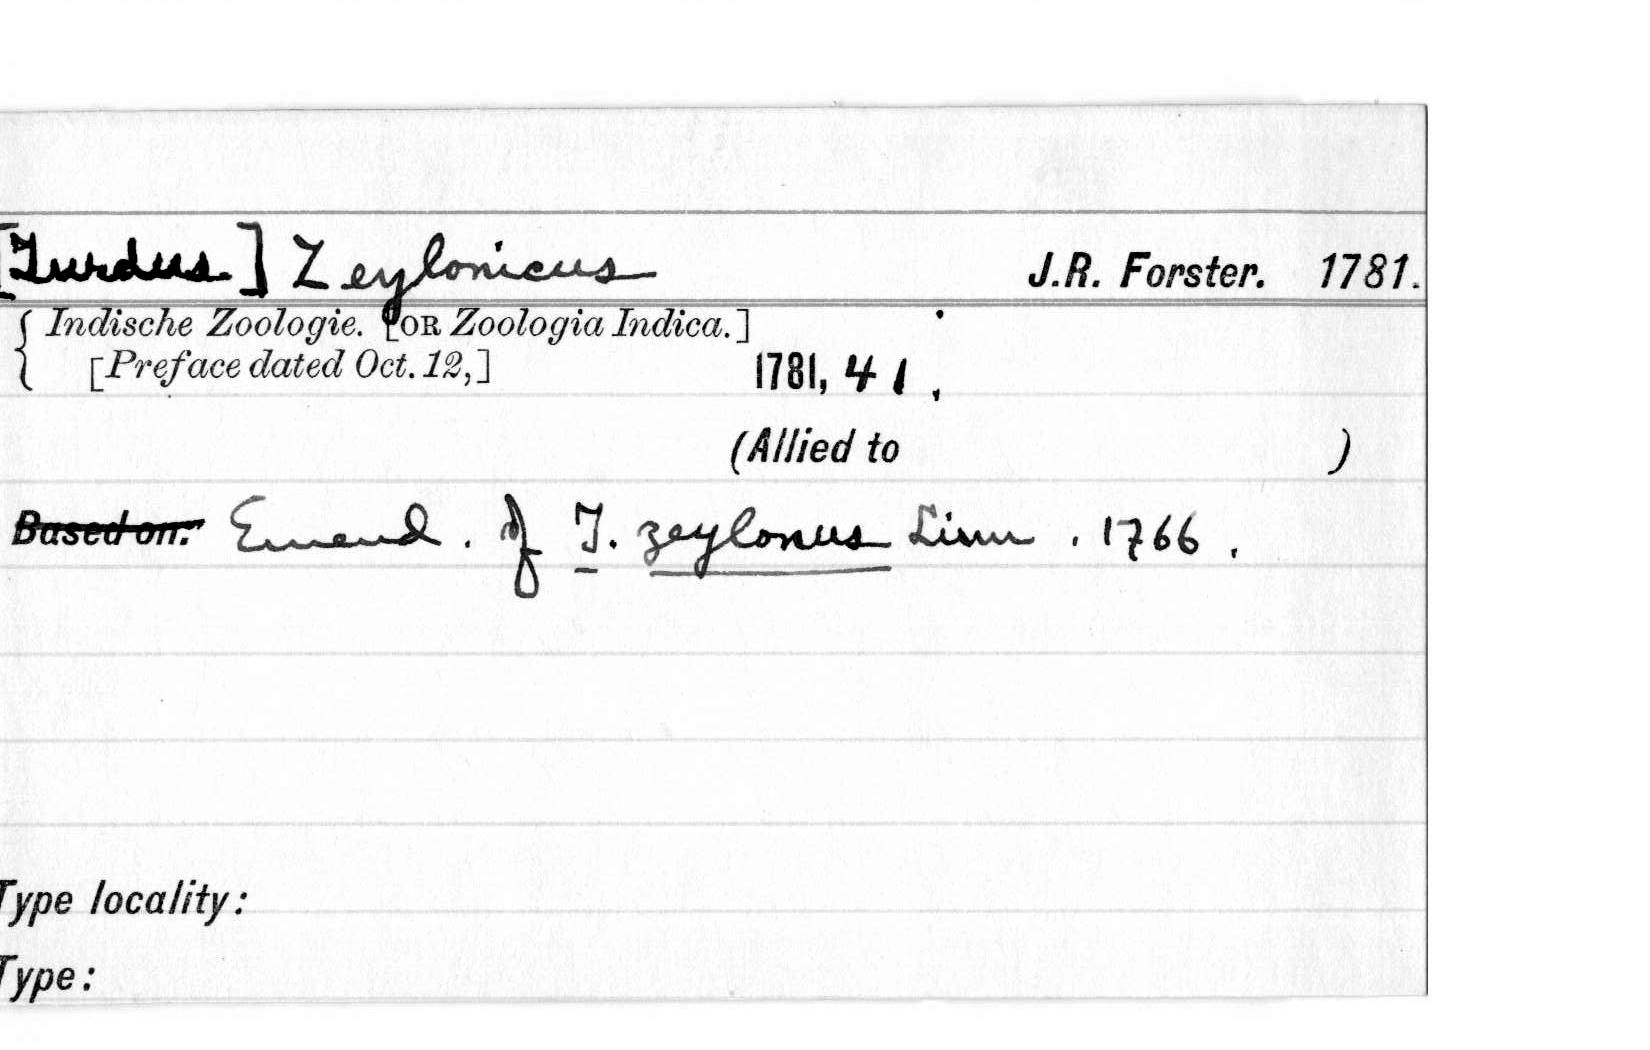 [Turdus.] Zeylonicus J.R. Forster. 1781.
{ Indische Zoologie. [OR Zoologia Indica.]
[Preface dated Oct. 12,] 1781, 41.
(Allied to )
Based on: Emend. of T. zeylonus Linn. 1766.
Type locality:
Type: